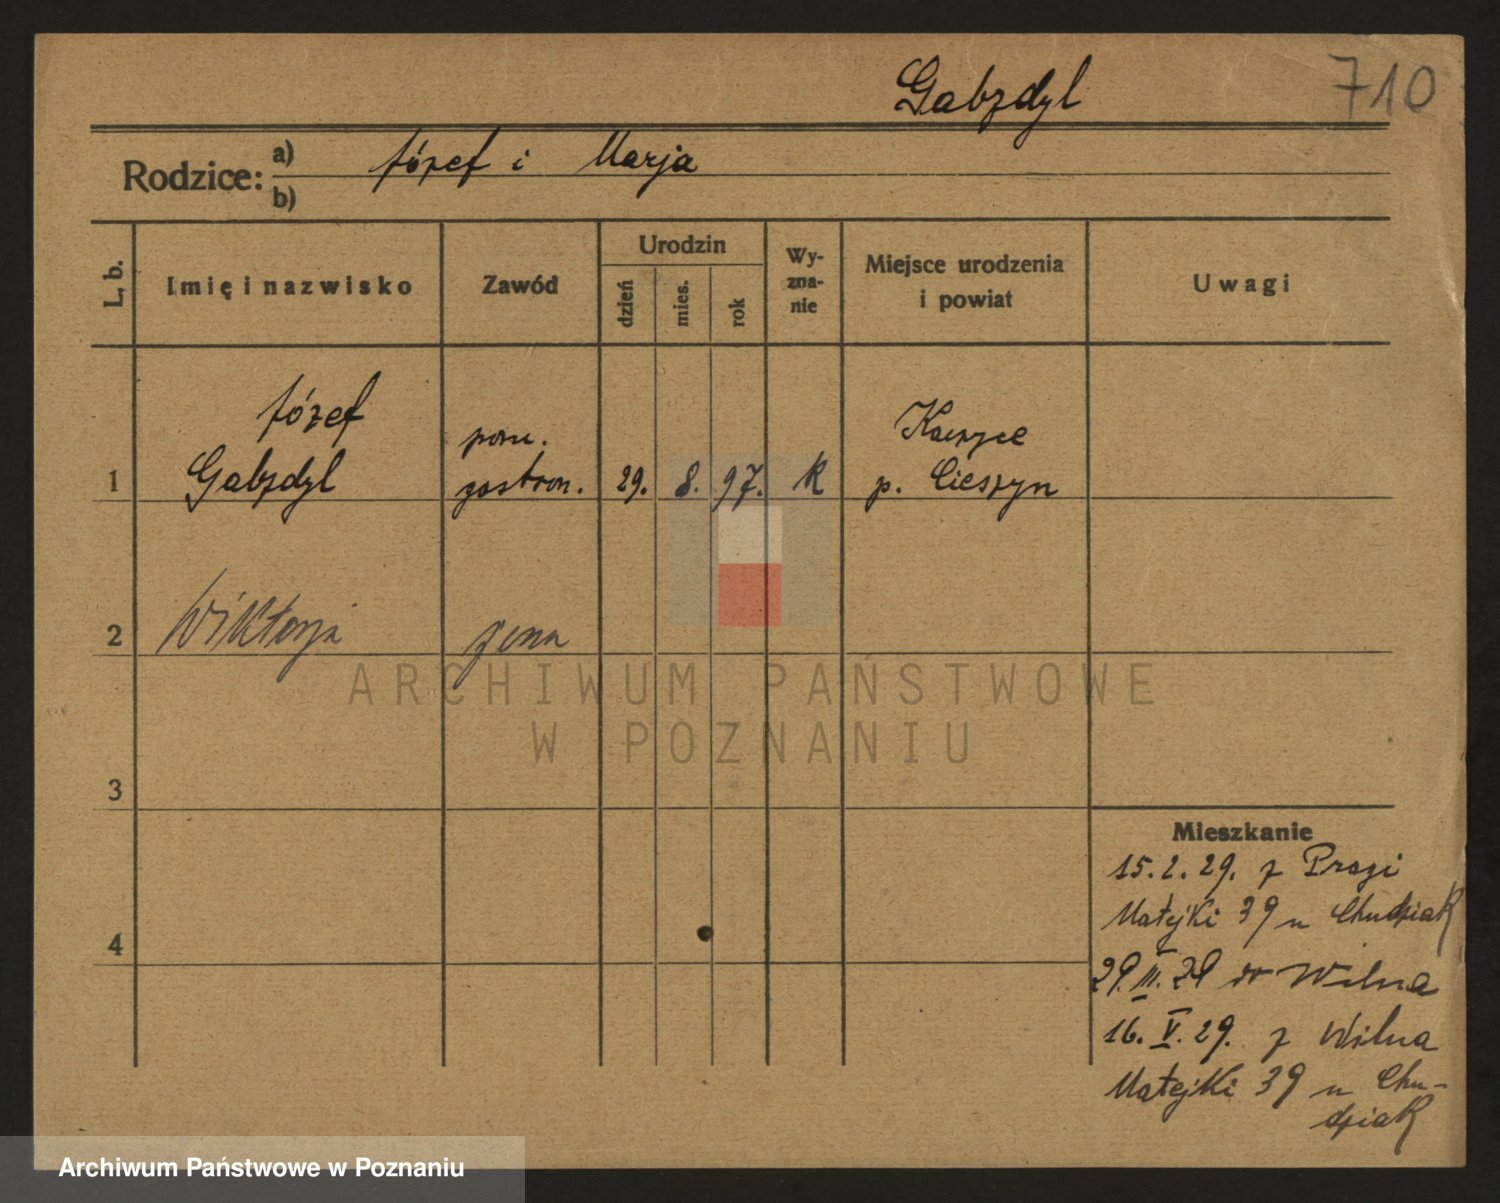 Gabzdyl
710
Rodzice: a) Józef i Marja
b)
L. b.
Imię i nazwisko
Zawód
Urodzin
dzień
mies.
rok
Wy-
zna-
nie
Miejsce urodzenia
i powiat
Uwagi
Józef
Gabzdyl
pom.
gastron.
1
29. 8. 97. K
Kaczyce
p. Cieszyn
2 Wiktorja żona
3
4
Mieszkanie
15. 2. 29. z Pragi
Matejki 39 u Chudziak
29. III. 29 do Wilna
16. V. 29. z Wilna
Matejki 39 u Chu-
dziak
ARCHIWUM PAŃSTWOWE
W POZNANIU
Archiwum Państwowe w Poznaniu